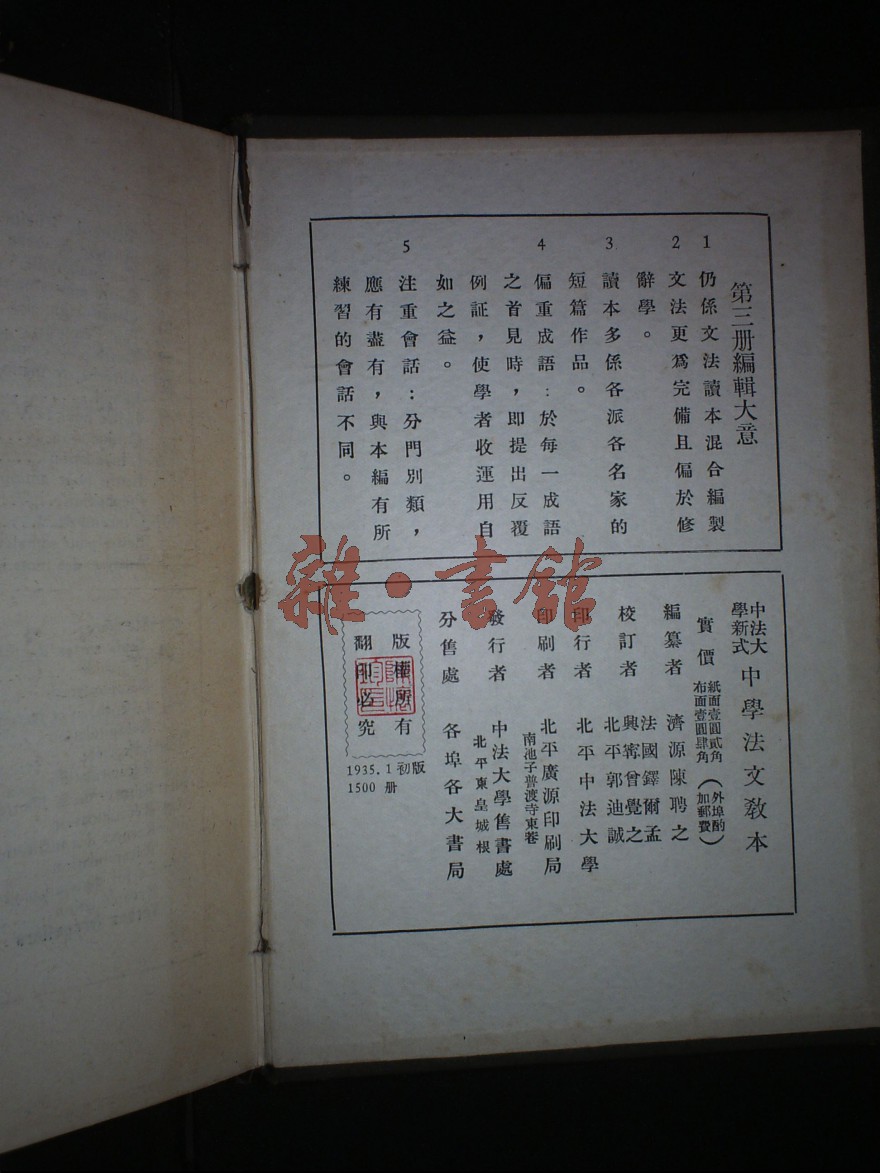 第三册編輯大意
1 仍係文法讀本混合編製
2 文法更爲完備且偏於修
辭學。
3 讀本多係各派各名家的
短篇作品。
4 偏重成語：於每一成語
之首見時，即提出反覆
例証，使學者收運用自
如之益。
5 注重會話：分門別類，
應有盡有，與本編有所
練習的會話不同。
中法大
學新式
中學法文教本
實價
紙面壹圓貳角
布面壹圓肆角
（外埠酌
加郵費）
編纂者 濟源陳聘之
校訂者
法國鐸爾孟
興寗曾覺之
北平郭迪誠
印行者 北平中法大學
印刷者 北平廣源印刷局
南池子普渡寺東巷
發行者 中法大學售書處
北平東皇城根
分售處 各埠各大書局
版權所有
翻印必究
1935.1初版
1500 册
雜·書館